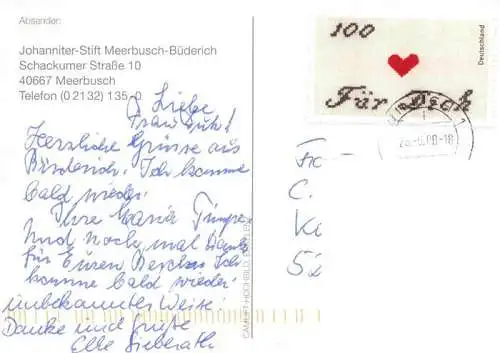 Absender:
Johanniter-Stift Meerbusch-Büderich
Schackumer Straße 10
40667 Meerbusch
Telefon (0 21 32) 135-0
Liebe
Frau
Herzliche Grüsse aus
Büderich. Ich komme
bald wieder.
Ihre Maria
Und noch mal Danke
für Euren Besuch. Ich
komme bald wieder.
unbekannter Weise
Danke und Grüße
Elle Sieberath
100
Für Dich
Deutschland